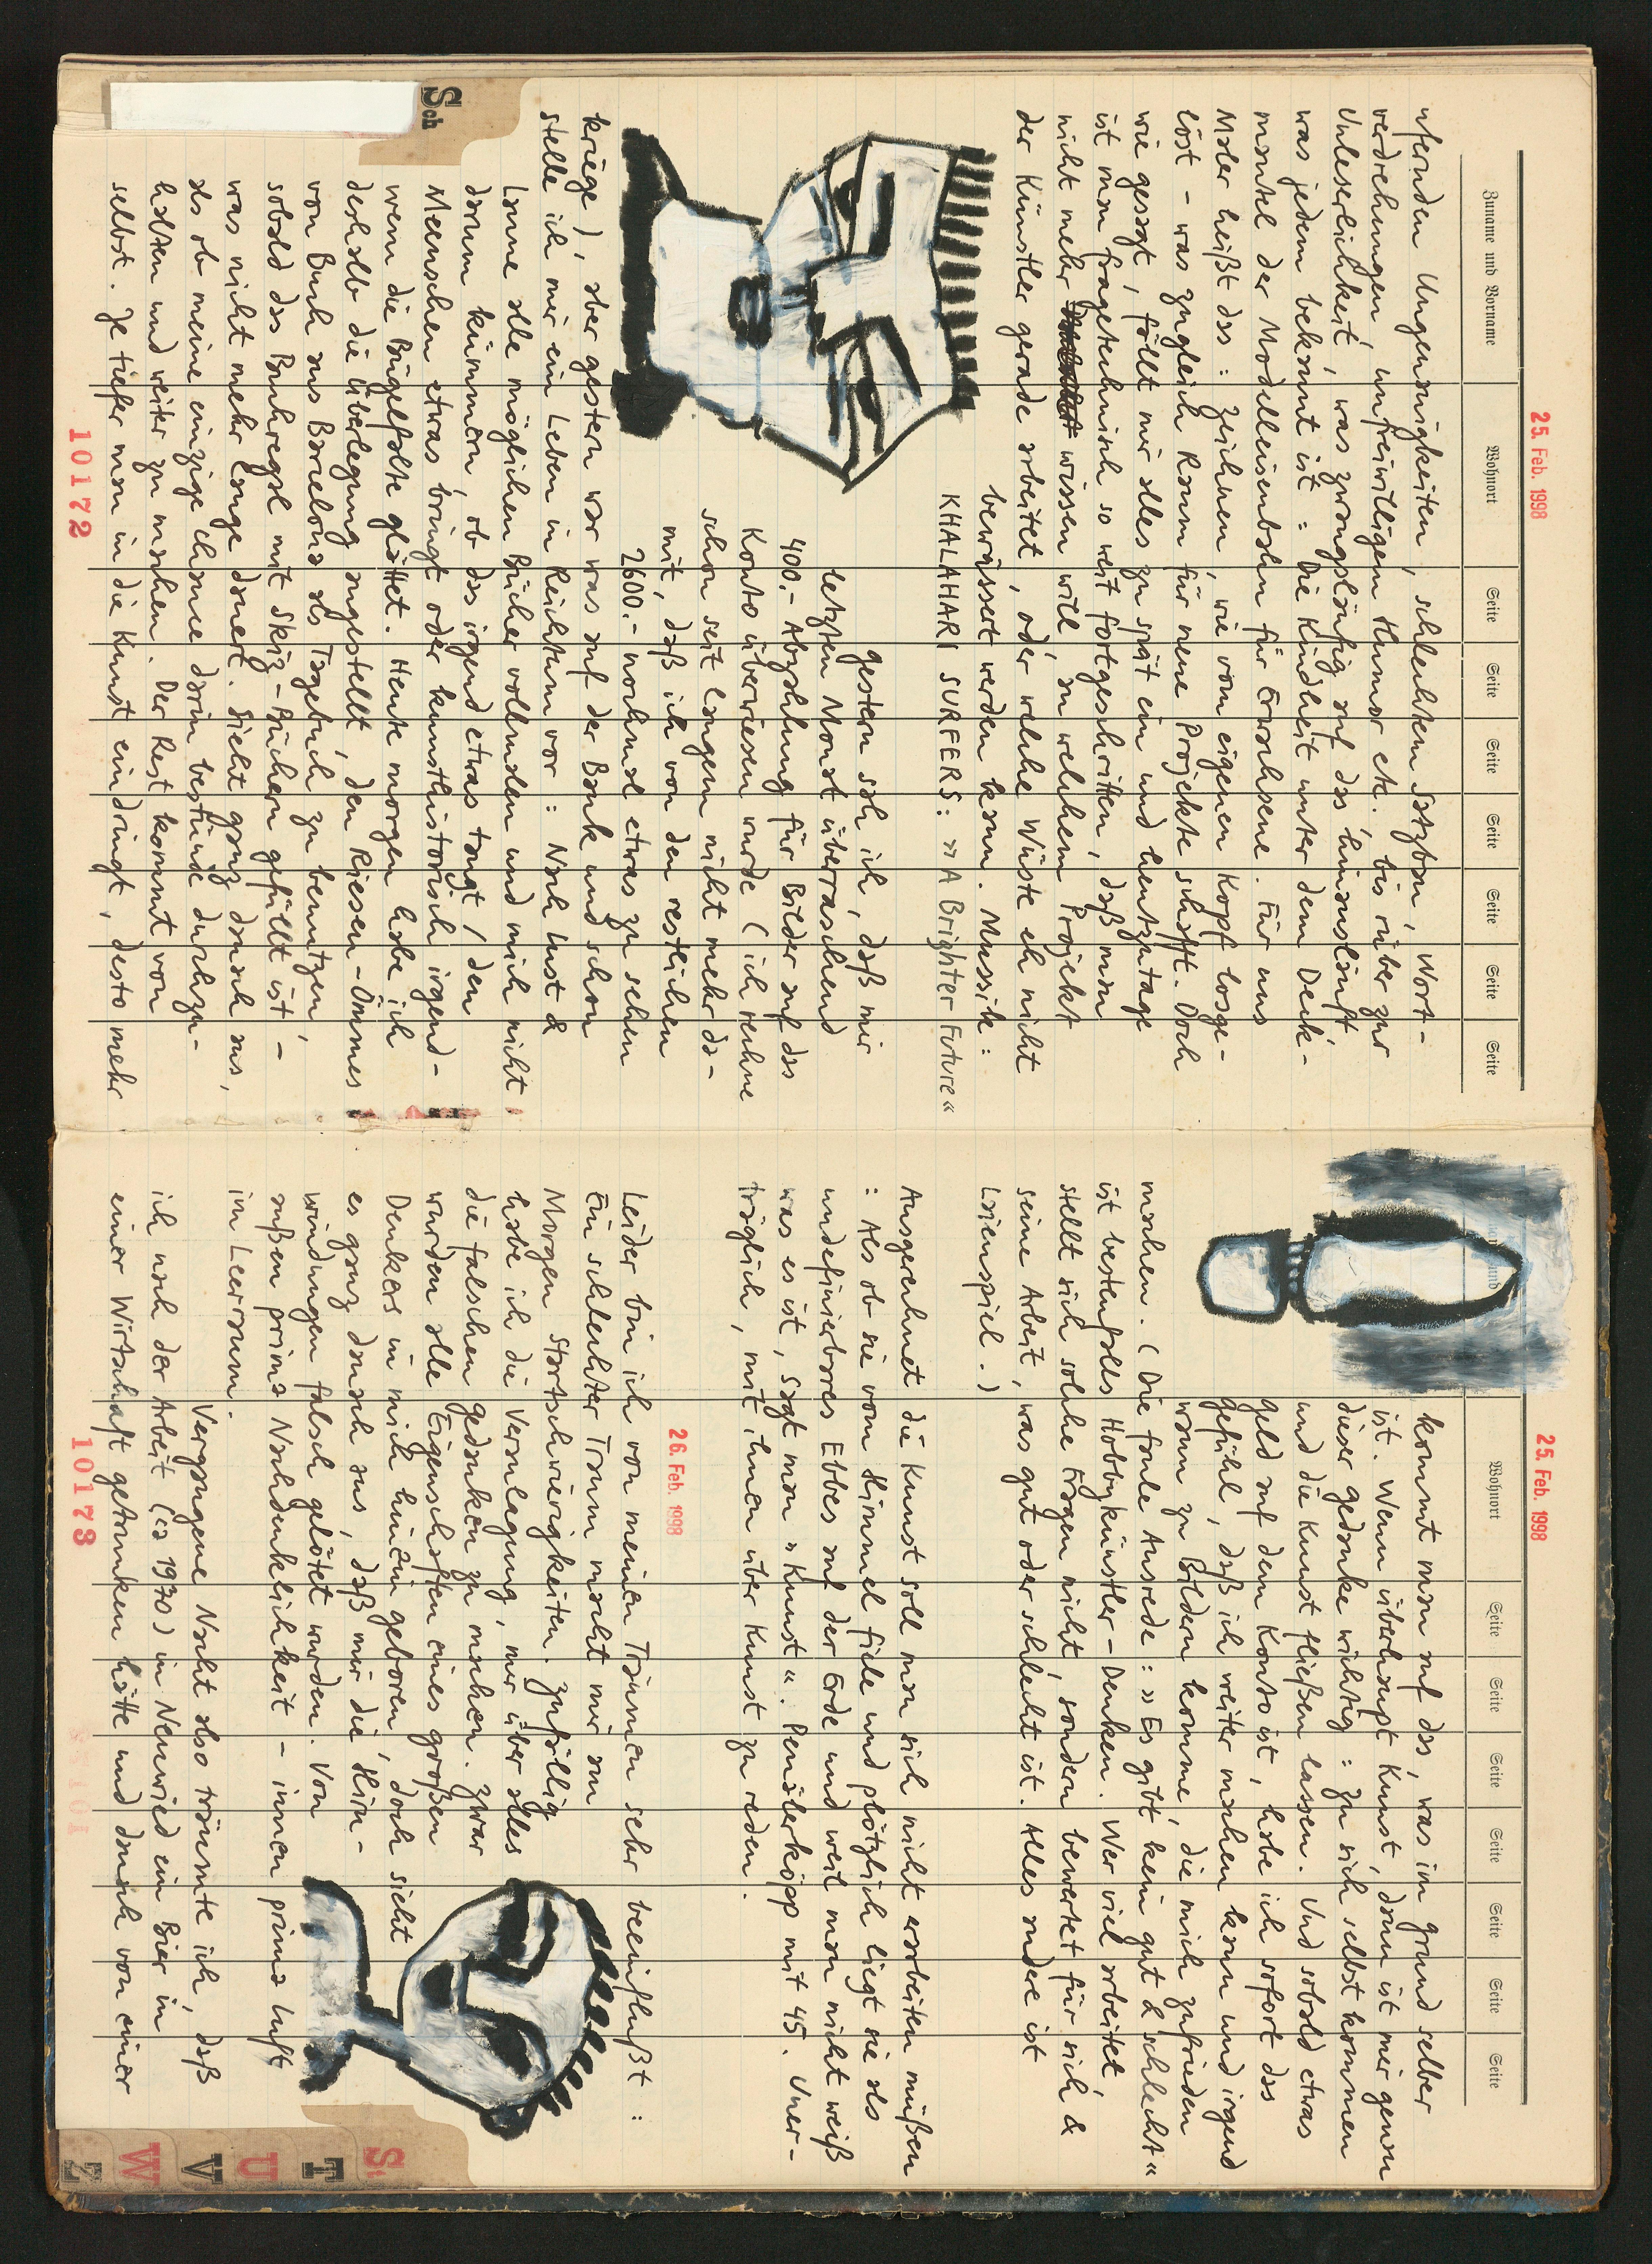 25. Feb. 1998
Zuname und Vorname Wohnort Seite Seite Seite Seite Seite Seite Seite
ufernden Ungenauigkeiten, schlechtem Satzbau, Wort-
verdrehungen, unfreiwilligem Humor etc. bis rüber zur
Unleserlichkeit, was zwangsläufig auf das hinausläuft,
was jedem bekannt ist: Die Kindheit unter dem Deck-
mantel der Modelleisenbahn für Erwachsene. Für uns
Maler heißt das: Zeichnen, wie vom eigenen Kopf losge-
löst - was zugleich Raum für neue Projekte schafft. Doch
wie gesagt, fällt mir alles zu spät ein und heutzutage
ist man fragetechnisch so weit fortgeschritten, daß man
nicht mehr wissen will, an welchem Projekt
der Künstler gerade arbeitet, oder welche Wüste eh nicht
bewässert werden kann. Mussik:
KHALAHARI SURFERS: »A Brighter Future«
Gestern sah ich, daß mir
letzten Monat überraschend
400.- Abzahlung für Bilder auf das
Konto überwiesen wurde (ich rechne
schon seit langem nicht mehr da-
mit, daß ich von den restlichen
2600.- nochmal etwas zu sehen
kriege), aber gestern war was auf der Bank und schon
stelle ich mir ein Leben in Reichtum vor: Nach Lust &
Laune alle möglichen Bücher vollmalen und mich nicht
darum kümmern, ob das irgend etwas taugt, den
Meenschen etwas bringt oder kunsthistorisch irgend-
wem die Bügelfalte glättet. Heute morgen habe ich
deshalb die Überlegung angestellt, den Riesen-Ömmes
von Buch aus Barcelona als Tagebuch zu benutzen,
sobald das Buchregal mit Skizz-Büchern gefüllt ist -
was nicht mehr lange dauert. Sieht ganz danach aus,
als ob meine einzige Chance darin bestünde durchzu-
halten und weiter zu machen. Der Rest kommt von
selbst. Je tiefer man in die Kunst eindringt, desto mehr
10172
Sch
25. Feb. 1998
Wohnort Seite Seite Seite Seite Seite Seite Seite
kommt man auf das, was im Grund selber
ist. Wenn überhaupt Kunst, dann ist mir genau
dieser Gedanke wichtig: Zu sich selbst kommen
und die Kunst fließen lassen. Und sobald etwas
Geld auf dem Konto ist, habe ich sofort das
Gefühl, daß ich weiter machen kann und irgend
wann zu Bildern komme, die mich zufrieden
machen. (Die faule Ausrede: »Es gibt kein gut & schlecht«
ist bestenfalls Hobbykünstler-Denken. Wer viel arbeitet,
stellt sich solche Fragen nicht, sondern bewertet für sich &
seine Arbeit, was gut oder schlecht ist. Alles andere ist
Laienspiel.)
Ausgerechnet die Kunst soll man sich nicht erarbeiten müßen
: Als ob sie vom Himmel fiele und plötzlich liegt sie als
undefinierbares Ebbes auf der Erde und weil man nicht weiß
was es ist, sagt man »Kunst«. Penälerköpp mit 45. Uner-
träglich, mit ihnen über Kunst zu reden.
26. Feb. 1998
Leider bin ich von meinen Träumen sehr beeinflußt:
Ein schlechter Traum macht mir am
Morgen Startschwierigkeiten. Zufällig
habe ich die Veranlagung, mir über alles
die falschen Gedanken zu machen. Zwar
wurden alle Eigenschaften eines großen
Denkers in mich hinein geboren, doch sieht
es ganz danach aus, daß mir die Hirn-
windungen falsch gelötet wurden. Von
außen prima Nachdenklichkeit - innen prima Luft
im Leerraum.
Vergangene Nacht also träumte ich, daß
ich nach der Arbeit (ca 1970) in Neuwied ein Bier in
einer Wirtschaft getrunken hätte und danach von einer
10173
S T U V W Z